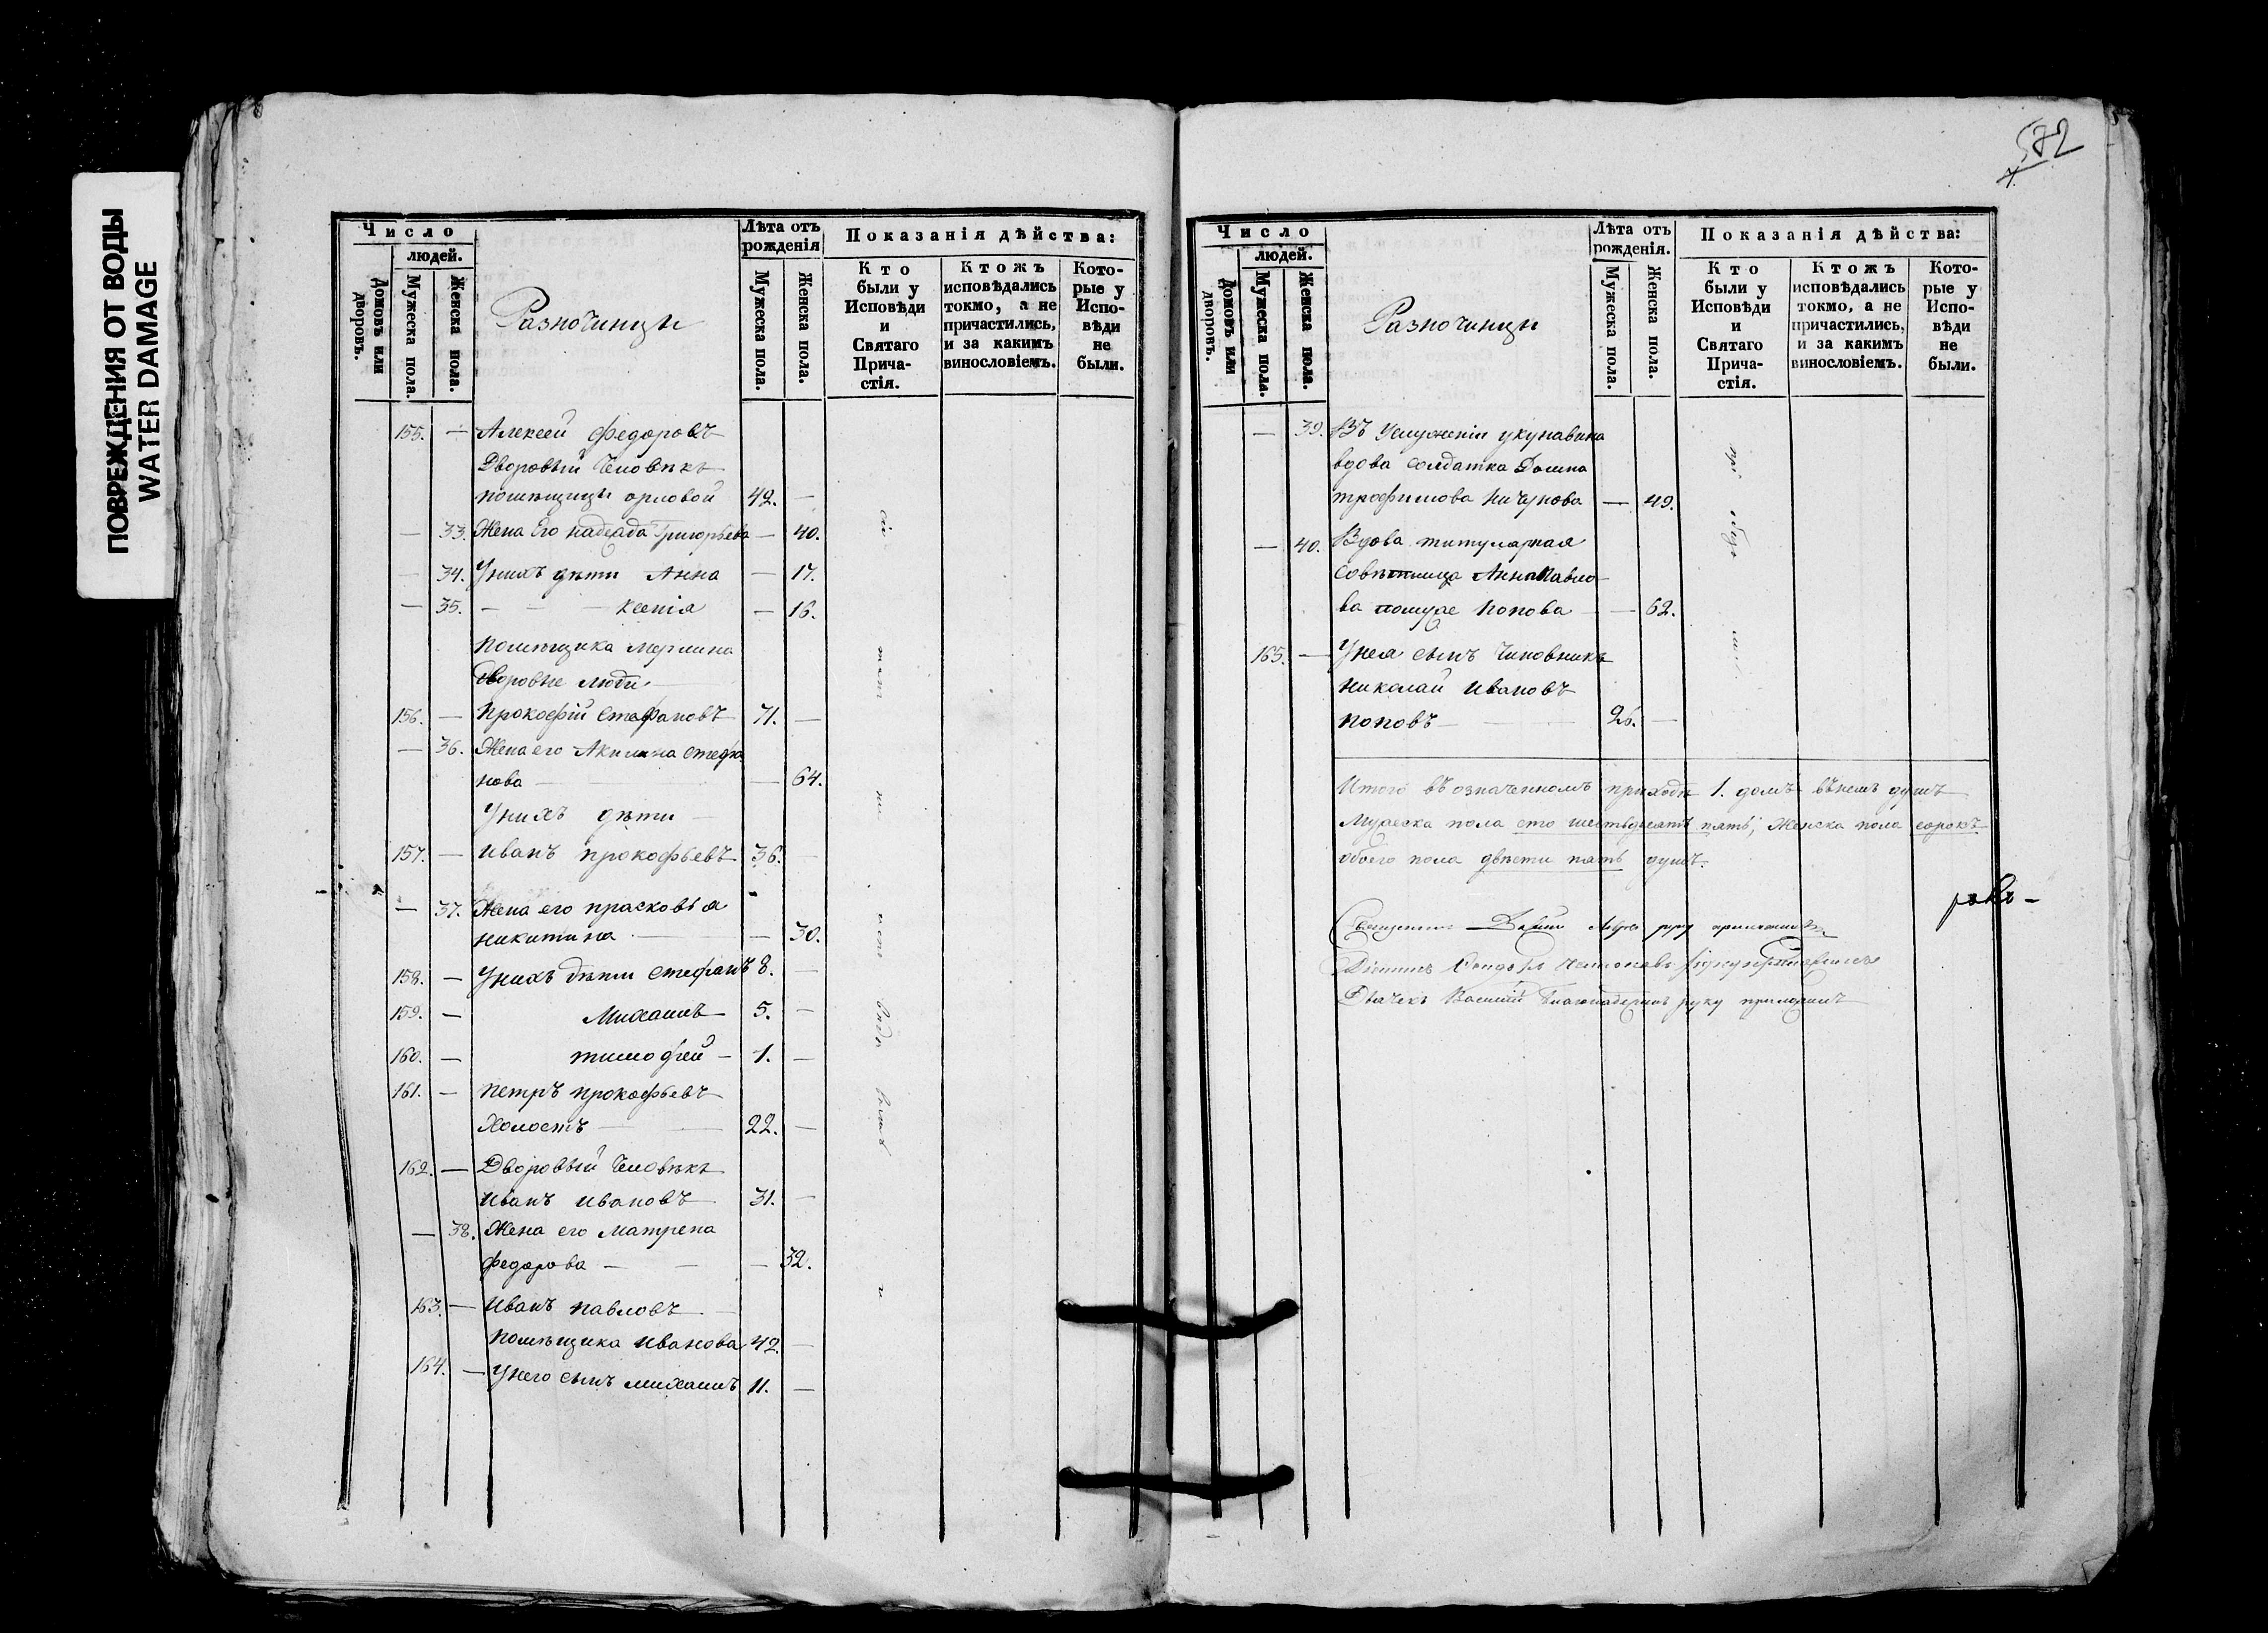 ПОВРЕЖДЕНИЯ ОТ ВОДЫ
WATER DAMAGE
572
Число
людей.
Домовъ или дворовъ.
Мужеска пола.
Женска пола.
Разночинцы
Лѣта отъ рожденія
Мужеска пола.
Женска пола.
Показанія дѣйства:
Кто были у Исповѣди и Святаго Прича-стія.
Ктожъ исповѣдались токмо, а не причастились, и за какимъ винословіемъ.
Кото-рые у Испо-вѣди не были.
155. — Алексей Федоровъ
Дворовый Человѣкъ
помѣщицы орловой 42. —
— 33. Жена Его надежда Григорьева — 40.
— 34. Унихъ дѣти Анна — 17.
— 35. — — — Ксенія — 16.
помѣщика Мерлина
дворовые люди
156. — Прокофій Стефановъ 71. —
— 36. Жена его Акилина Стефа
нова — — 64.
Унихъ дѣти
157. — Иванъ прокофьевъ 36. —
— 37. Жена его прасковья
никитина — — 30.
158. — Унихъ дѣти Стефанъ 8. —
159. — Михаилъ 5. —
160. — тимофей — 1. —
161. — петръ прокофьевъ
Холостъ — 22. —
162. — Дворовый Человѣкъ
Иванъ Ивановъ 31. —
— 38. Жена его Матрена
федорова — — — 32.
163. — Иванъ павловъ
помѣщика Иванова 42. —
164. — Унего сынъ михаилъ 11. —
Число
людей.
Домовъ или дворовъ.
Мужеска пола.
Женска пола.
Разночинцы
Лѣта отъ рожденія.
Мужеска пола.
Женска пола.
Показанія дѣйства:
Кто были у Исповѣди и Святаго Прича-стія.
Ктожъ исповѣдались токмо, а не причастились, и за какимъ винословіемъ.
Кото-рые у Испо-вѣди не были.
— 39. Въ Услуженіи
вдова солдатка Домна
трофимова — 49.
— 40. Вдова титулярная
Совѣтница Анна Павло
ва Попова — — 62.
165. — Унея сынъ Чиновникъ
николай Ивановъ
поповъ — 26. —
Итого въ означенномъ приходѣ 1. домъ внемъ душъ
Мужеска пола сто шестьдесятъ пять, Женска пола сорокъ
обоего пола двѣсти пять душъ.
Священникъ
Діаконъ
Дьячекъ Василій руку приложилъ